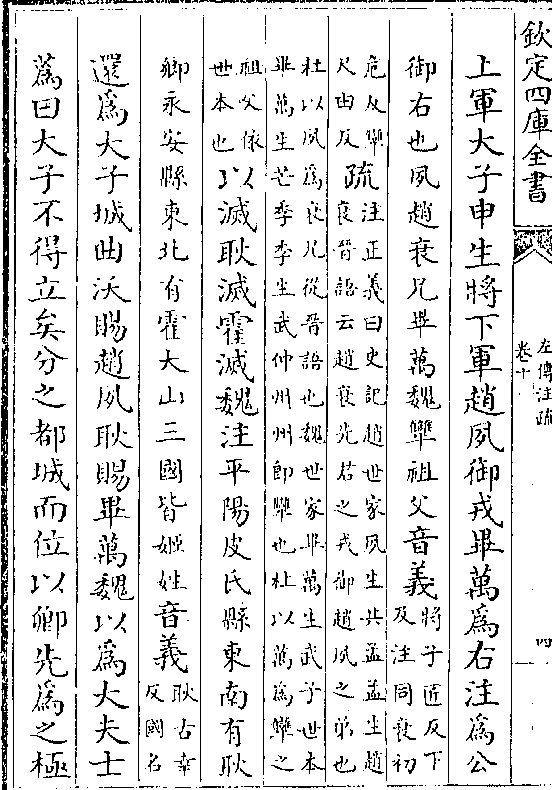 欽定四庫全書
左傳注疏
卷十
四
上軍大子申生將下軍趙夙御戎畢萬為右注為公
御右也夙趙衰兄畢萬魏犨祖父音義
將子匠反下
反注同衰初
危反犨
尺由反
疏
注正義曰史記趙世家夙生共孟孟生趙
衰晉語云趙衰先君之戎御趙夙之弟也
杜以夙為衰兄從晉語也魏世家畢萬生武子世本
畢萬生芒季季生武仲州州即犨也杜以萬為犨之
祖父依
世本也
以滅耿滅霍滅魏注平陽皮氏縣東南有耿
卿永安縣東北有霍大山三國皆姬姓音義
耿古幸
反國名
還為大子城曲沃賜趙夙耿賜畢萬魏以為大夫士
蔿曰大子不得立矣分之都城而位以卿先為之極